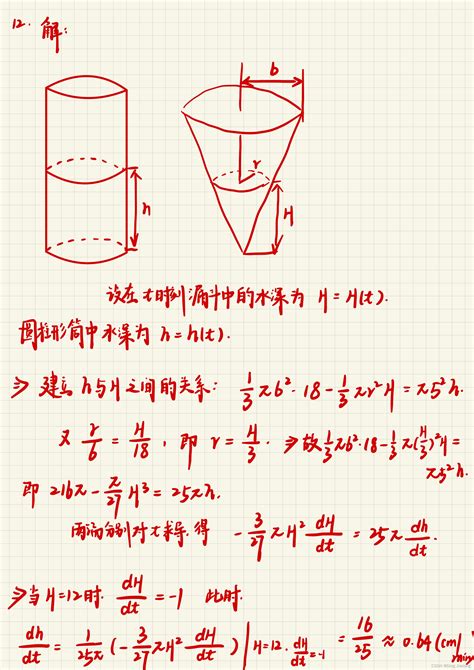 12. 解:
b
r
h
H
设在 t 时刻漏斗中的水深为 H = H(t).
圆柱形筒中水深为 h = h(t).
⇒ 建立 h 与 H 之间的关系: 1/3 π6²·18 - 1/3 πr²H = π5²h.
又 r/6 = H/18, 即 r = H/3. ⇒ 故 1/3 π6²·18 - 1/3 π(H/3)²H =
π5²h.
即 216π - π/27 H³ = 25πh.
两端分别对 t 求导, 得 - 3/27 πH² dH/dt = 25π dh/dt.
⇒ 当 H=12时. dH/dt = -1 此时.
dh/dt = 1/25π (- 3/27 πH² dH/dt) | H=12. dH/dt=-1 = 16/25 ≈ 0.64 (cm/min